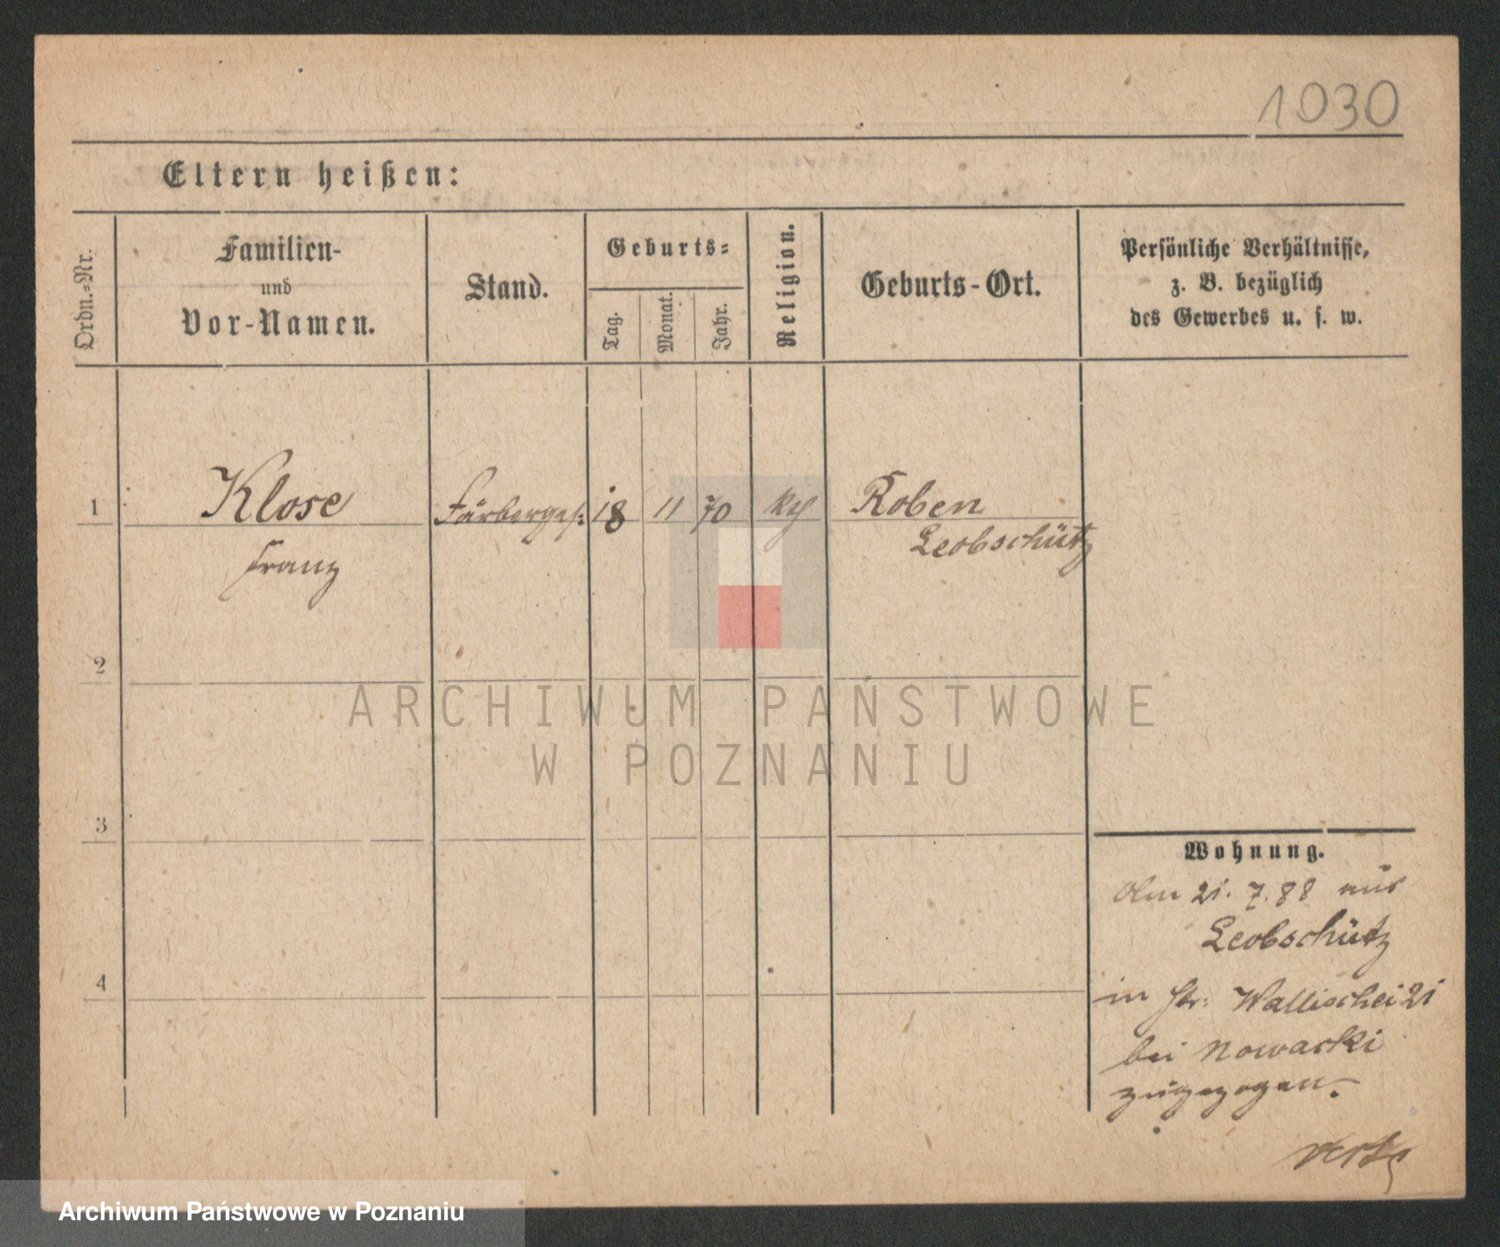 1030
Eltern heißen:
Ordn.-Nr.
Familien-
und
Vor-Namen.
Stand.
Geburts-
Tag.
Monat.
Jahr.
Religion.
Geburts-Ort.
Persönliche Verhältnisse,
z. B. bezüglich
des Gewerbes u. s. w.
1
Klose
Färberges:
18
11
70
kth
Roben
Leobschütz
Franz
2
3
4
Wohnung.
Am 21. 7. 88 aus
Leobschütz
in Str: Wallischei 21
bei Nowacki
zugezogen.
ARCHIWUM PAŃSTWOWE
W POZNANIU
Archiwum Państwowe w Poznaniu